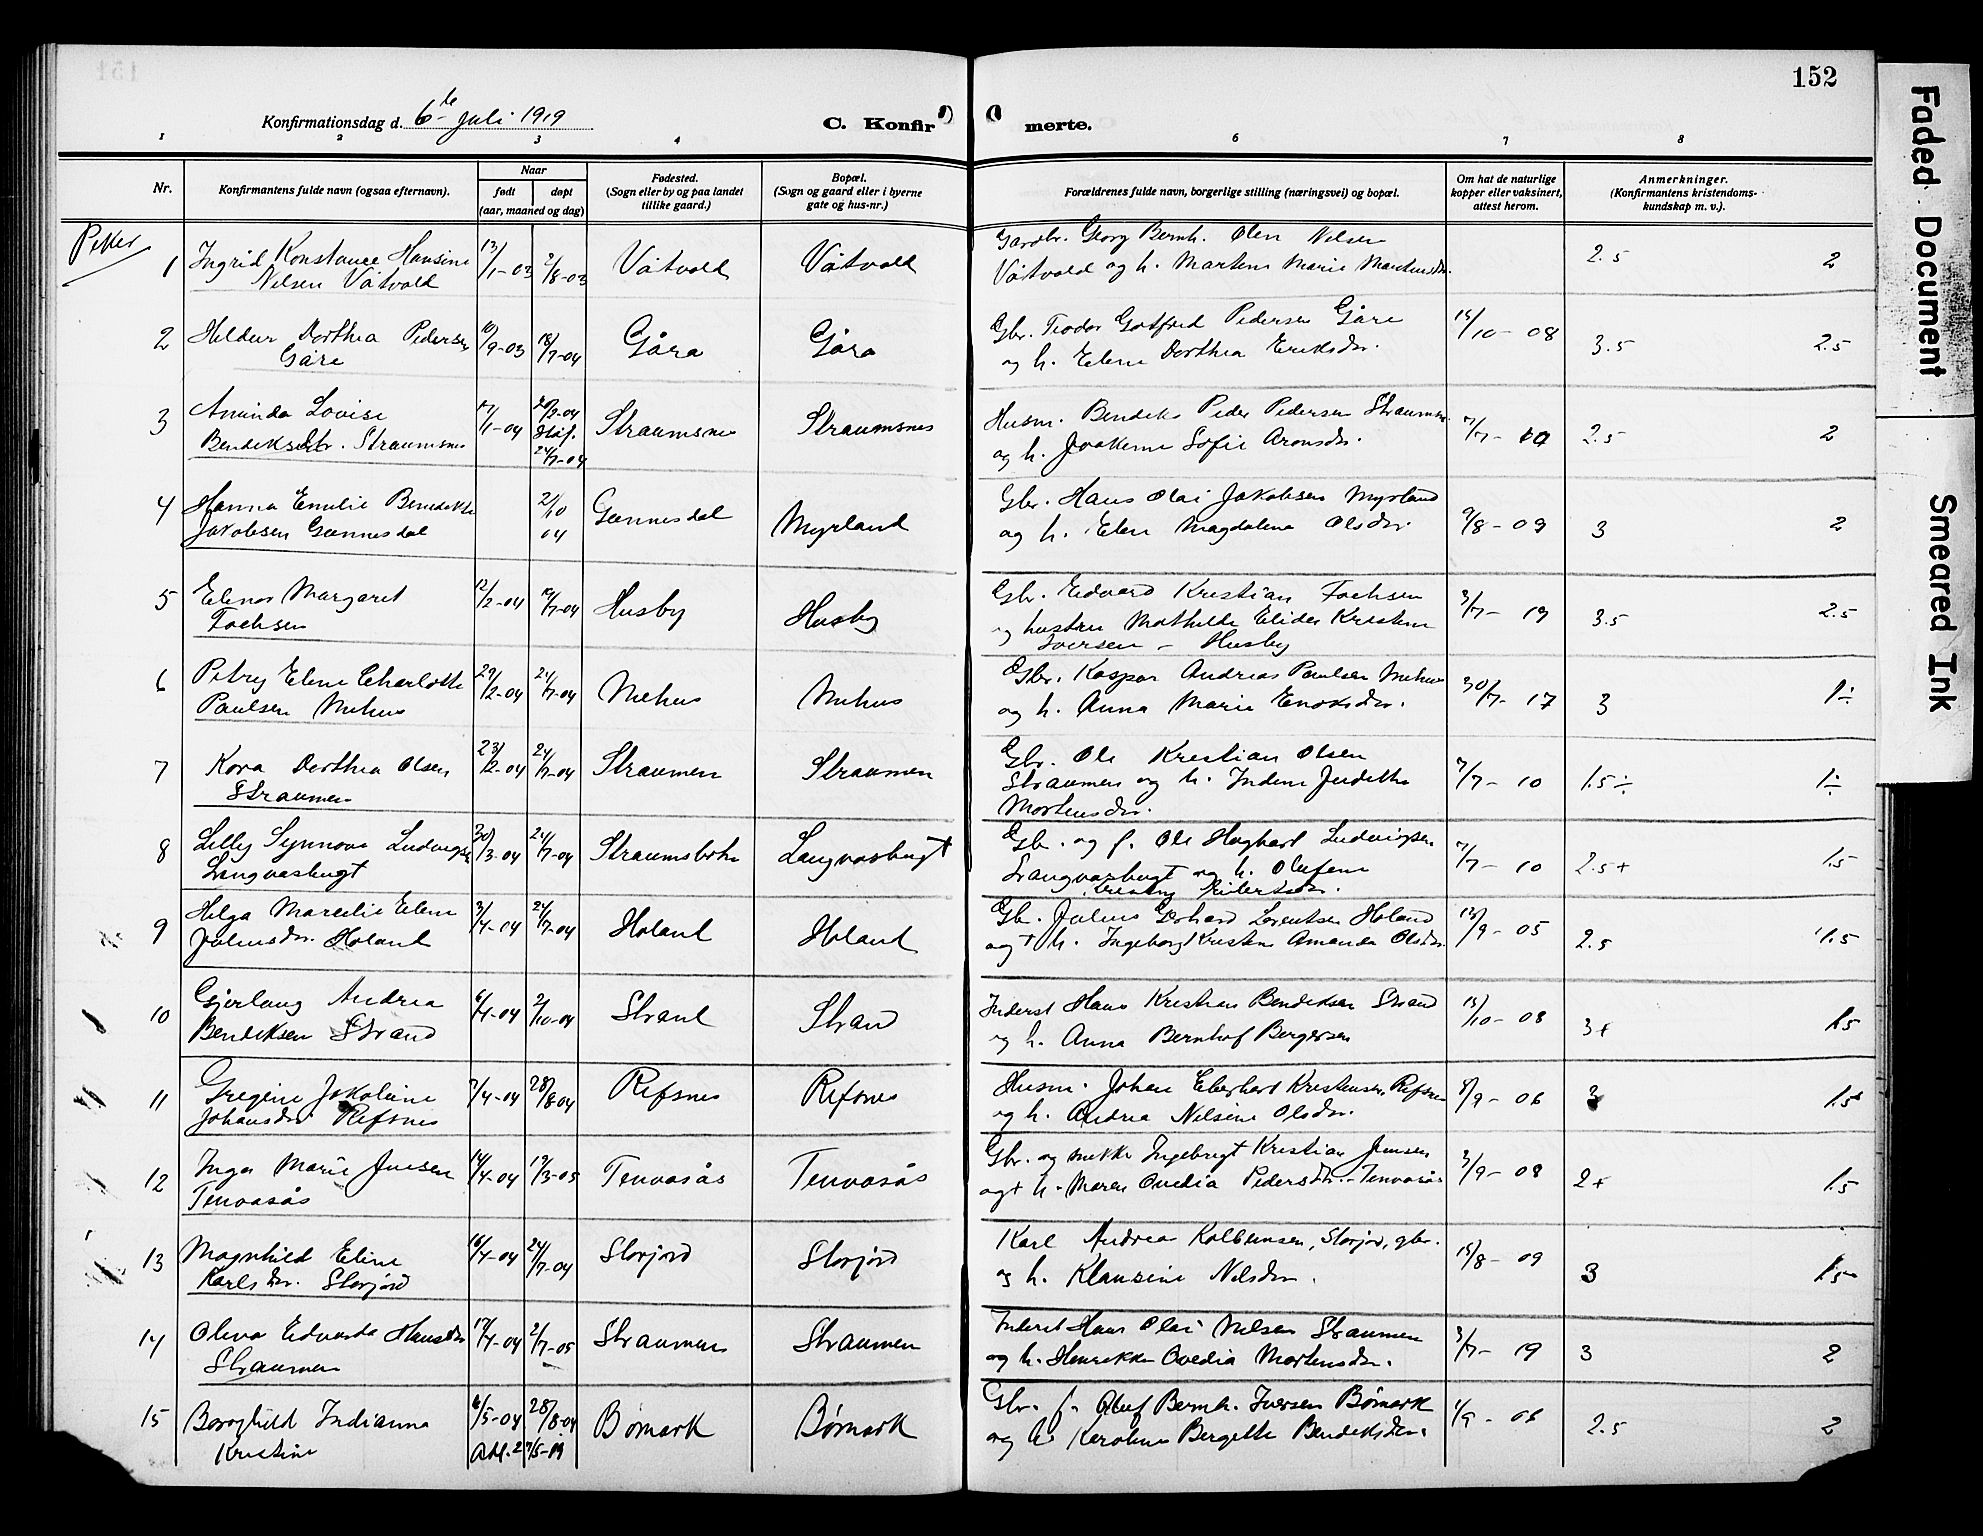 152
Konfirmationsdag d. 6te juli 1919
C. Konfirmerte.
1 2 3 4 6 7 8
Nr.
Konfirmantens fulde navn (ogsaa efternavn).
Naar
født døpt
(aar, maaned og dag)
Fødested.
(Sogn eller by og paa landet
tillike gaard.)
Bopæl.
(Sogn og gaard eller i byerne
gate og hus-nr.)
Forældrenes fulde navn, borgerlige stilling (næringsvei) og bopæl.
Om hat de naturlige
kopper eller vaksinert,
attest herom.
Anmerkninger.
(Konfirmantens kristendoms-
kundskap m. v.).
Piker
1 Ingrid Konstance Hansine 13/1-03 2/8-03 Våtvold Våtvold Gardbr. Georg Bernh. Olen Nilsen 2.5 2
Nilsen Våtvold Våtvold og h. Martine Marie Martinsdr.
2 Hildur Dorthea Pedersen 10/9-03 18/7-04 Gåra Gåra Gbr. Teodor Gotfred Pedersen Gåre 15/10-08 3.5 2.5
Gåre og h. Elene Dorthea Eriksdr.
3 Aminda Lovise 17/1-04 28/2-04 Straumsnes Straumsnes Husm. Bendiks Peder Pedersen Straumsnes 7/7-10 2.5 2
Bendiksdtr. Straumsnes Staf. 24/7-04 og h. Joakime Sofie Aronsdr.
4 Hanna Emilie Bendikte 2/10 04 Gønnesdal Myrland Gbr. Hans Olai Jakobsen Myrland 9/8-09 3 2
Jakobsen Gønnesdal og h. Elen Magdalena Olsdr.
5 Elenor Margaret 12/2-04 17/7-04 Husby Husby Gbr. Edvard Kristian Fochsen 3/7-19 3.5 2.5
Fochsen og hustru Mathilde Elida Kristine
Iversen - Husby
6 Petry Eline Charlotte 29/2-04 24/7-04 Mehus Mehus Gbr. Kaspar Andreas Paulsen Mehus 30/7-17 3 1÷
Paulsen Mehus og h. Anna Marie Enoksdr.
7 Kora Dorthea Olsen 23/2-04 24/7-04 Straumen Straumen Gbr. Ole Kristian Olsen 7/7-10 1.5÷ 1÷
Straumen Straumen og h. Indine Judithe
Mortensdr.
8 Lilly Synnøve Ludvigsen 30/3-04 24/7-04 Straumsbotn Langvasbugt Gbr. og f. Ole Haghart Ludvigsen 7/7-10 2.5+ 1.5
Langvasbugt Langvasbugt og h. Olufine
9 Helga Marcelie Eline 3/4-04 24/7-04 Holand Holand Gbr. Julius Edvard Lorentsen Holand 13/9-05 2.5 1.5
Juliusdr. Holand og + h. Ingeborg Kristine Amanda Olsdr.
10 Gjerlaug Andrea 6/4-04 2/10-04 Strand Strand Inderst Hans Kristian Bendiksen Strand 15/10-08 3+ 1.5
Bendiksen Strand og h. Anna Bernhof Bergersen
11 Gregine Jakobine 7/4-04 28/8-04 Refsnes Refsnes Husm. Johan Eberhart Kristensen Refsnes 8/9-06 3 1.5+
Johansdr. Refsnes og h. Andrea Nilsine Olsdr.
12 Inga Marie Jensen 14/4-04 19/3-05 Tenvasås Tenvasås Gbr. og smekke Ingebrigt Kristian Jensen 3/9-08 2+ 1.5
Tenvasås og + h. Maren Ovedia Pedersdtr. Tenvasås
13 Magnhild Eline 16/4-04 24/7-04 Storjord Storjord Karl Andrea Kolbensen, Storjord, gbr. 15/8-09 3 1.5
Karlsdr. Storjord og h. Klausine Nilsdr.
14 Oliva Edvarda Hansdr 17/4-04 2/7-05 Straumen Straumen Inderst Hans Olai Nilsen Straumen 3/7-19 3 2
Straumen og h. Henrikke Ovedia Mortensdr.
15 Borghild Indianna 6/5-04 28/8-04 Børnark Børnark Gbr. f. Oluf Bernh. Iversen Børnark 1/9-06 2.5 2
Kristine Att. 27/5-19 og h. Karoline Bergitte Bendiksdr.
Faded Document
Smeared Ink